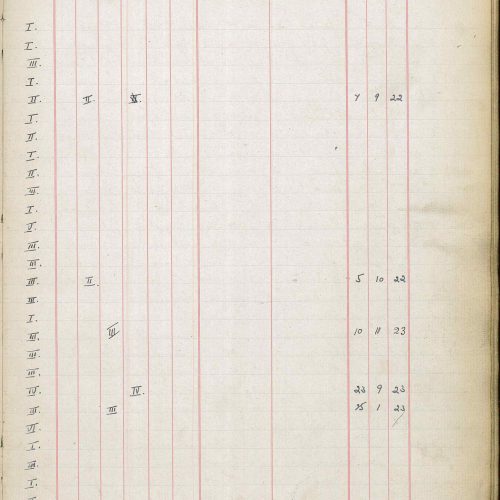 I.
I.
III.
I.
II. II. 7 9 22
I.
II.
I.
II.
III.
I.
V.
III.
III.
III. II. 5 10 22
III.
I.
VI. III 10 11 23
III.
III.
IV. IV. 23 9 23
III. III 25 1 23
VI.
I.
III.
I.
I.